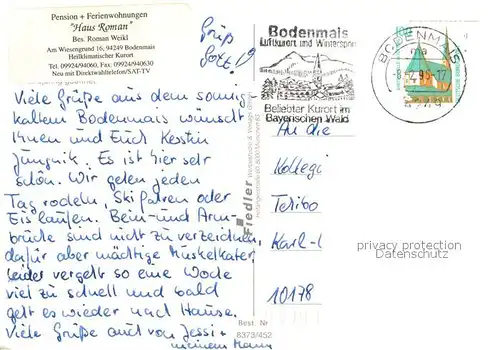 Pension + Ferienwohnungen
"Haus Roman"
Bes. Roman Weikl
Am Wiesengrund 16, 94249 Bodenmais
Heilklimatischer Kurort
Tel. 09924/94060, Fax. 09924/940630
Neu mit Direktwahltelefon/SAT-TV
Grüß
Gott!
Viele Grüße aus dem sonnig
kaltem Bodenmais wünscht
Ihnen und Euch Kerstin
Es ist hier sehr
schön. Wir gehen jeden
Tag rodeln, Ski fahren oder
Eislaufen. Bein- und Arm-
brüche sind nicht zu verzeichnen,
dafür aber mächtige Muskelkater
leider vergeht so eine Woche
viel zu schnell und bald
geht es wieder nach Hause.
Viele Grüße auch von Jessi +
meinem Mann
Fiedler
Best. Nr.
8373/452
Bodenmais
Luftkurort und Wintersport
Beliebter Kurort im
Bayerischen Wald
BODENMAIS
An die
Kollegi
Karl-l
10178
privacy protection
Datenschutz